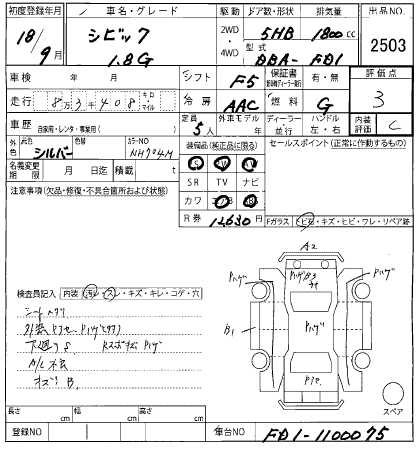 初度登録年月
18/9月
車名・グレード
シビック
1.8G
駆動
2WD
4WD
ドア数・形状
5HB
排気量
1800cc
型式
DBA-FD1
出品NO.
2503
車検 年 月
シフト F5
保証書 有・無
評価点
3
走行 8万3千408 キロ マイル
冷房 AAC
燃料 G
車歴 自家用・レンタ・事業用( )
定員 5人
外車モデル 年
ディーラー 並行
ハンドル 左・右
内装評価 C
外色 元色 シルバー 色替
カラーNO NH704M
装備品(純正品に限る)
セールスポイント(正常に作動するもの)
名義変更期限 月 日迄
積載 t
SR TV ナビ
カワ
R券 12,630円
注意事項(欠品・修復・不具合箇所および状態)
Fガラス トビ石・キズ・ヒビ・ワレ・リペア跡
検査員記入 内装 汚レ・スレ・キズ・キレ・コゲ・穴
A2
Pハゲ
Pハゲ
B1
Pハゲ
下廻りS
キズ B
スペア
長さ cm 幅 cm 高さ cm
登録NO
車台NO FD1-1100075